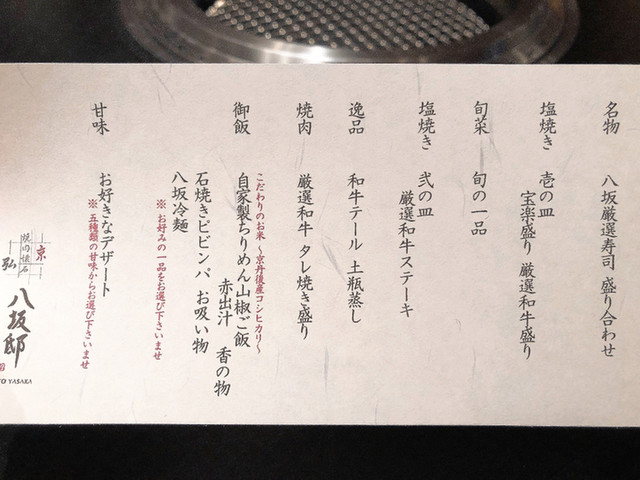 名物　八坂厳選寿司 盛り合わせ
塩焼き　壱の皿
宝楽盛り 厳選和牛盛り
旬菜　旬の一品
塩焼き　弐の皿
厳選和牛ステーキ
逸品　和牛テール 土瓶蒸し
焼肉　厳選和牛 タレ焼き盛り
こだわりのお米 〜京丹後産コシヒカリ〜
御飯　自家製ちりめん山椒ご飯
赤出汁　香の物
石焼きビビンパ お吸い物
八坂冷麺
※ お好みの一品をお選び下さいませ
甘味　お好きなデザート
※ 五種類の甘味からお選び下さいませ
京
焼肉懐石
弘
八坂邸
TO YASAKA